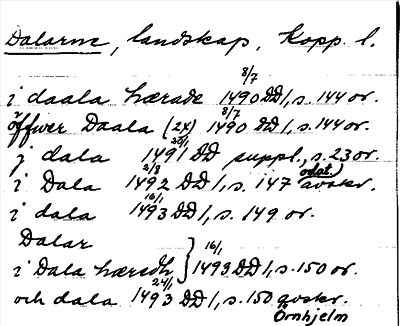 Dalarne, landskap, Kopp. l.
i daala hærade 8/7 1490 DD 1, s. 144 or.
öffwer Daala (2x) 8/7 1490 DD 1, s. 144 or.
j dala 1491 DD suppl., s. 23 or.
i Dala 2/8 1492 DD 1, s. 147 odat. avskr.
i dala 16/1 1493 DD 1, s. 149 or.
Dalar
i Dala hæredh } 16/1 1493 DD 1, s. 150 or.
och dala 24/1 1493 DD 1, s. 150 avskr.
Örnhjelm